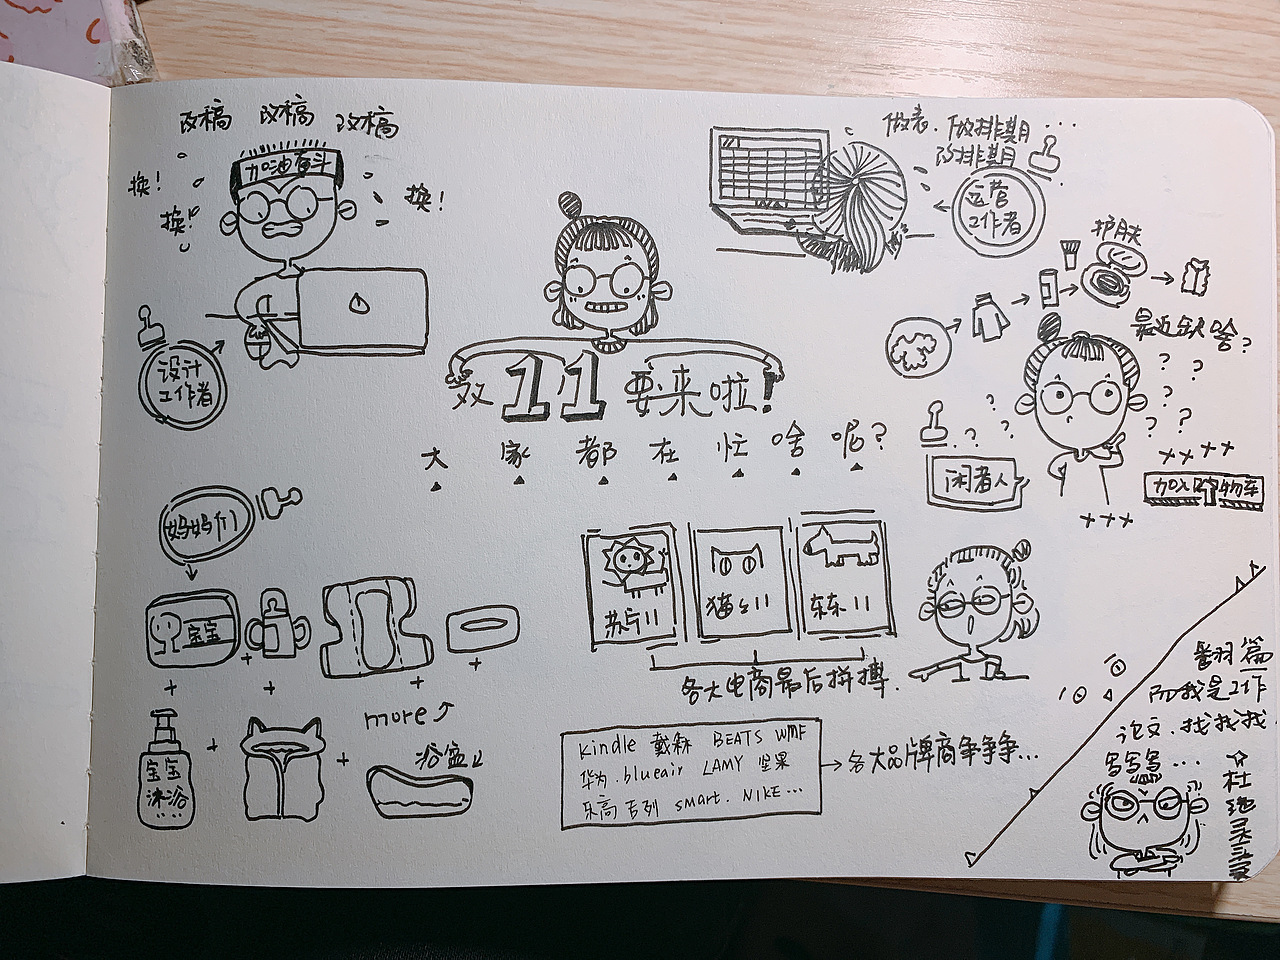 改稿 改稿 改稿
加油奋斗
换!
换!
换!
设计
工作者
做表、做排期...
改排期
运营
工作者
双11要来啦!
大家都在忙啥呢?
护肤
最近缺啥?
闲者人
加入购物车
妈妈们
宝宝
more
浴盆
宝宝
沐浴
苏宁11
猫么11
东东11
各大电商最后拼搏.
kindle 戴森 BEATS WMF
华为.blueair LAMY 坚果
乐高系列 smart. NIKE...
各大品牌商争争争...
翻羽篇
而我是工作
论文.找找找.
写写写...
杜绝